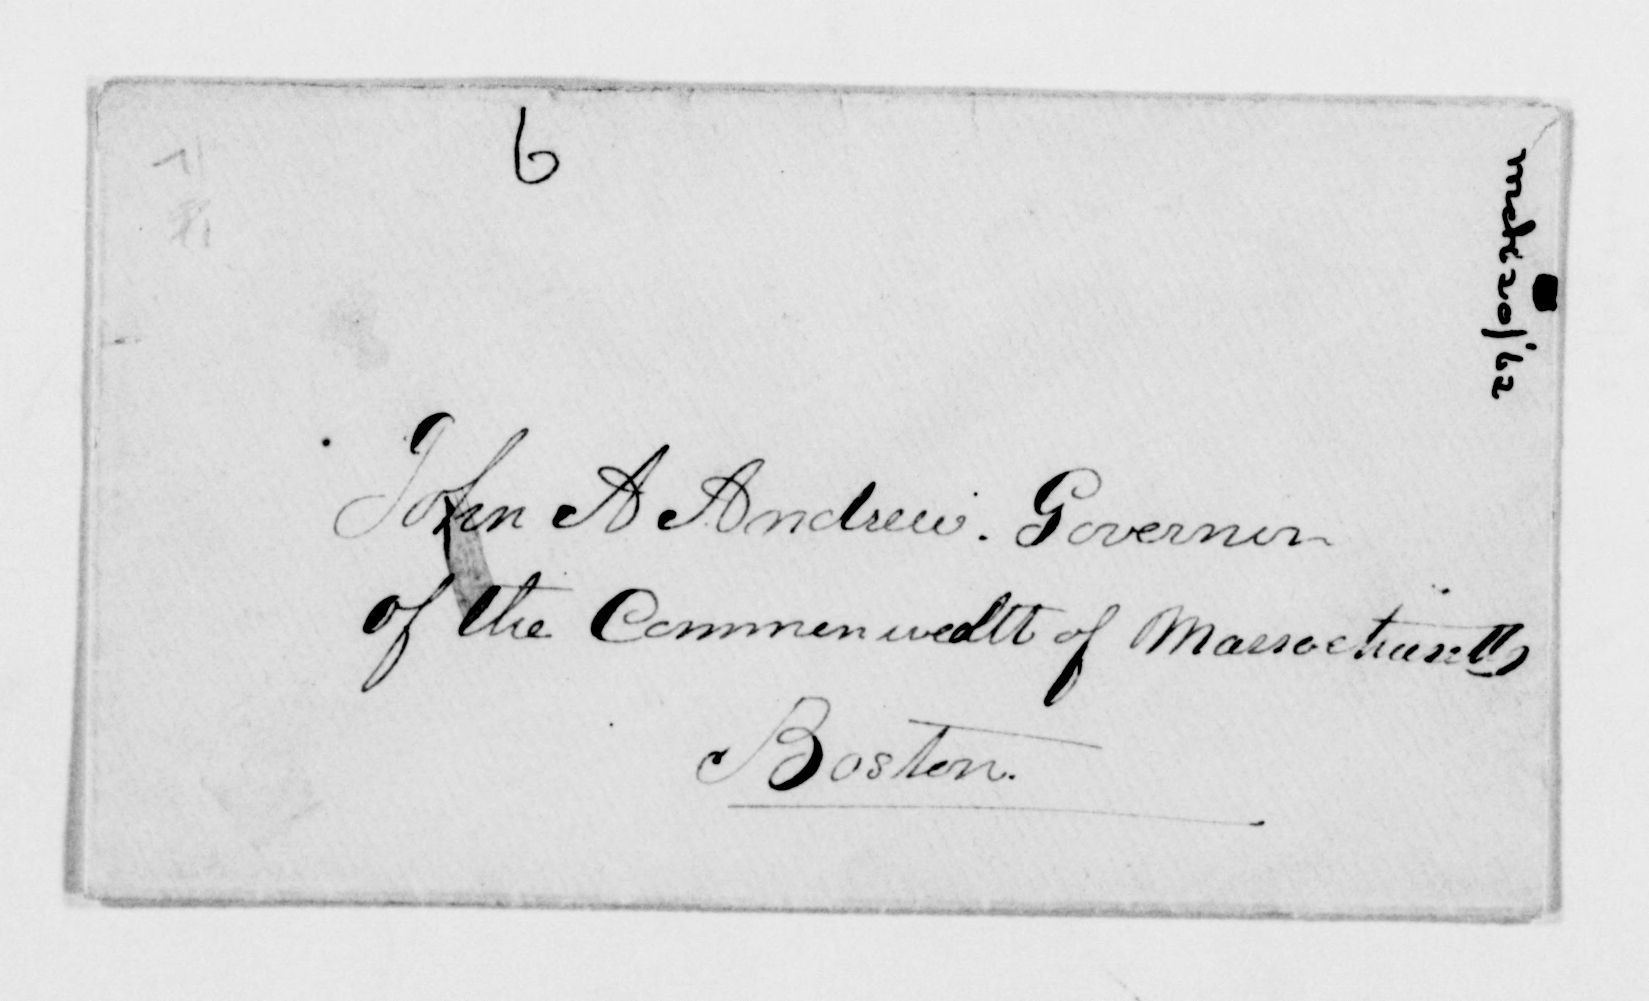 6
John A Andrew. Governor
of the Commonwealth of Massachusetts
Boston.
20/'62